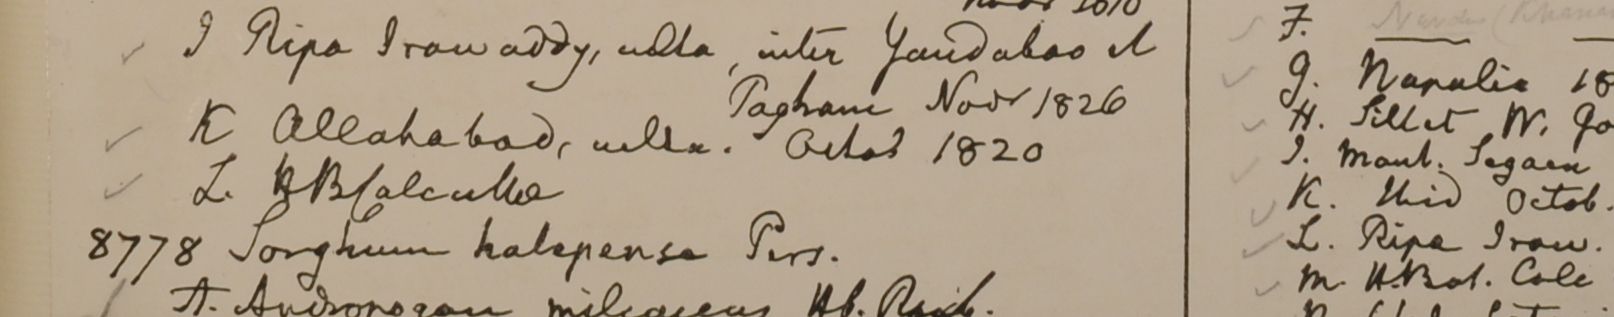 I Ripa Irawaddy, culta, inter Yandaboo et
Pagham Novr 1826
K Allahabad, culta. Octob 1820
L. HBCalcutta
8778 Sorghum halepense Pers.
A. Andropogon miliaceus Hb. Roxb.
F.
G. Napalia 18
H. Sillet W. Go
I. Mont. Segaen
K. Ibid Octob.
L. Ripa Iraw.
M. H.Bot. Calc